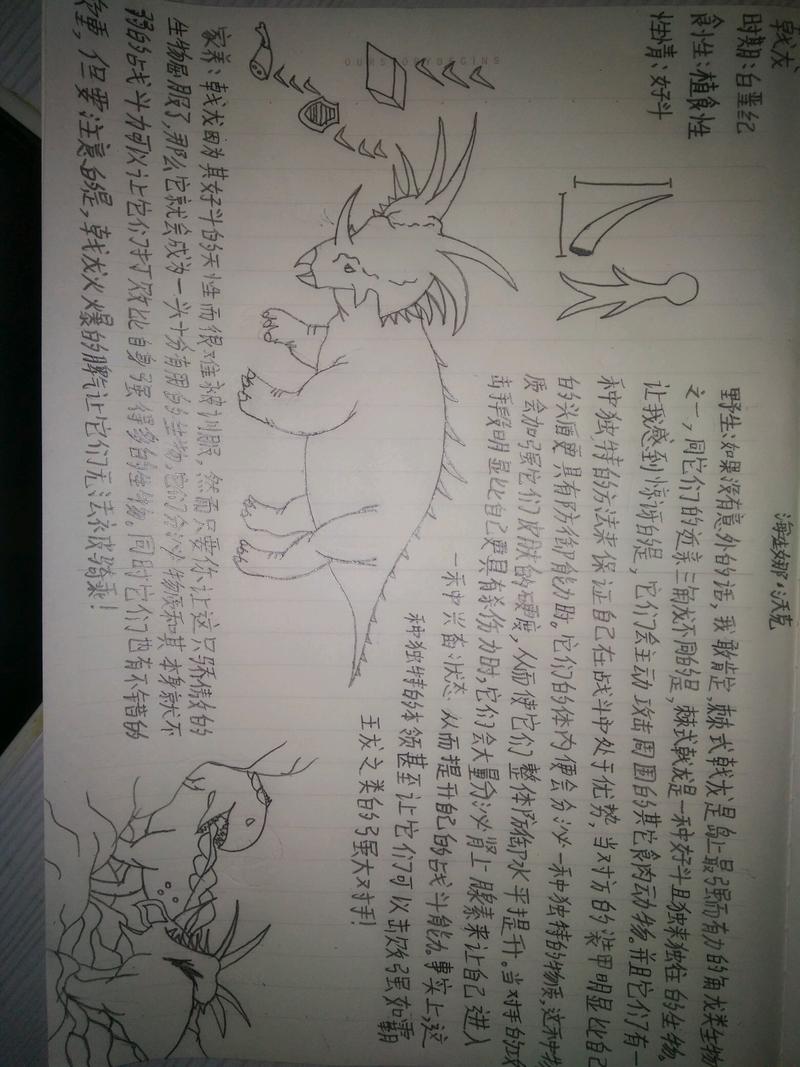 戟龙
时期:白垩纪
食性:植食性
性情:好斗
海伦娜·沃克
野生:如果没有意外的话,我敢肯定,棘式戟龙是岛上最强而有力的角龙类生物
之一,同它们的近亲三角龙不同的是,棘式戟龙是一种好斗且独来独往的生物。
让我感到惊讶的是,它们会主动攻击周围的其它食肉动物。并且它们有一
种独特的方法来保证自己在战斗中处于优势,当对方的装甲明显比自己
的头盾更具有防御能力时。它们的体内便会分泌一种独特的物质,这种物
质会加强它们皮肤的硬度,从而使它们整体防御水平提升。当对手的攻
击手段明显比自己更具有杀伤力时,它们会大量分泌肾上腺素来让自己进入
一种兴奋状态 从而提升自己的占戈斗能力。事实上,这
种独特的本领甚至让它们可以击败强如霸
王龙之类的强大对手!
OUR STORY BEGINS
家养:戟龙因为其好斗的天性而很难被训服,然而只要你让这只骄傲的
生物屈服了,那么它就会成为一头十分有用的生物。它们分泌物质和其本身就不
弱的战斗力可以让它们打败比自身强得多的生物。同时它们也有不错的
负重,但要注意的是,戟龙火爆的脾气让它们无法被骑乘!